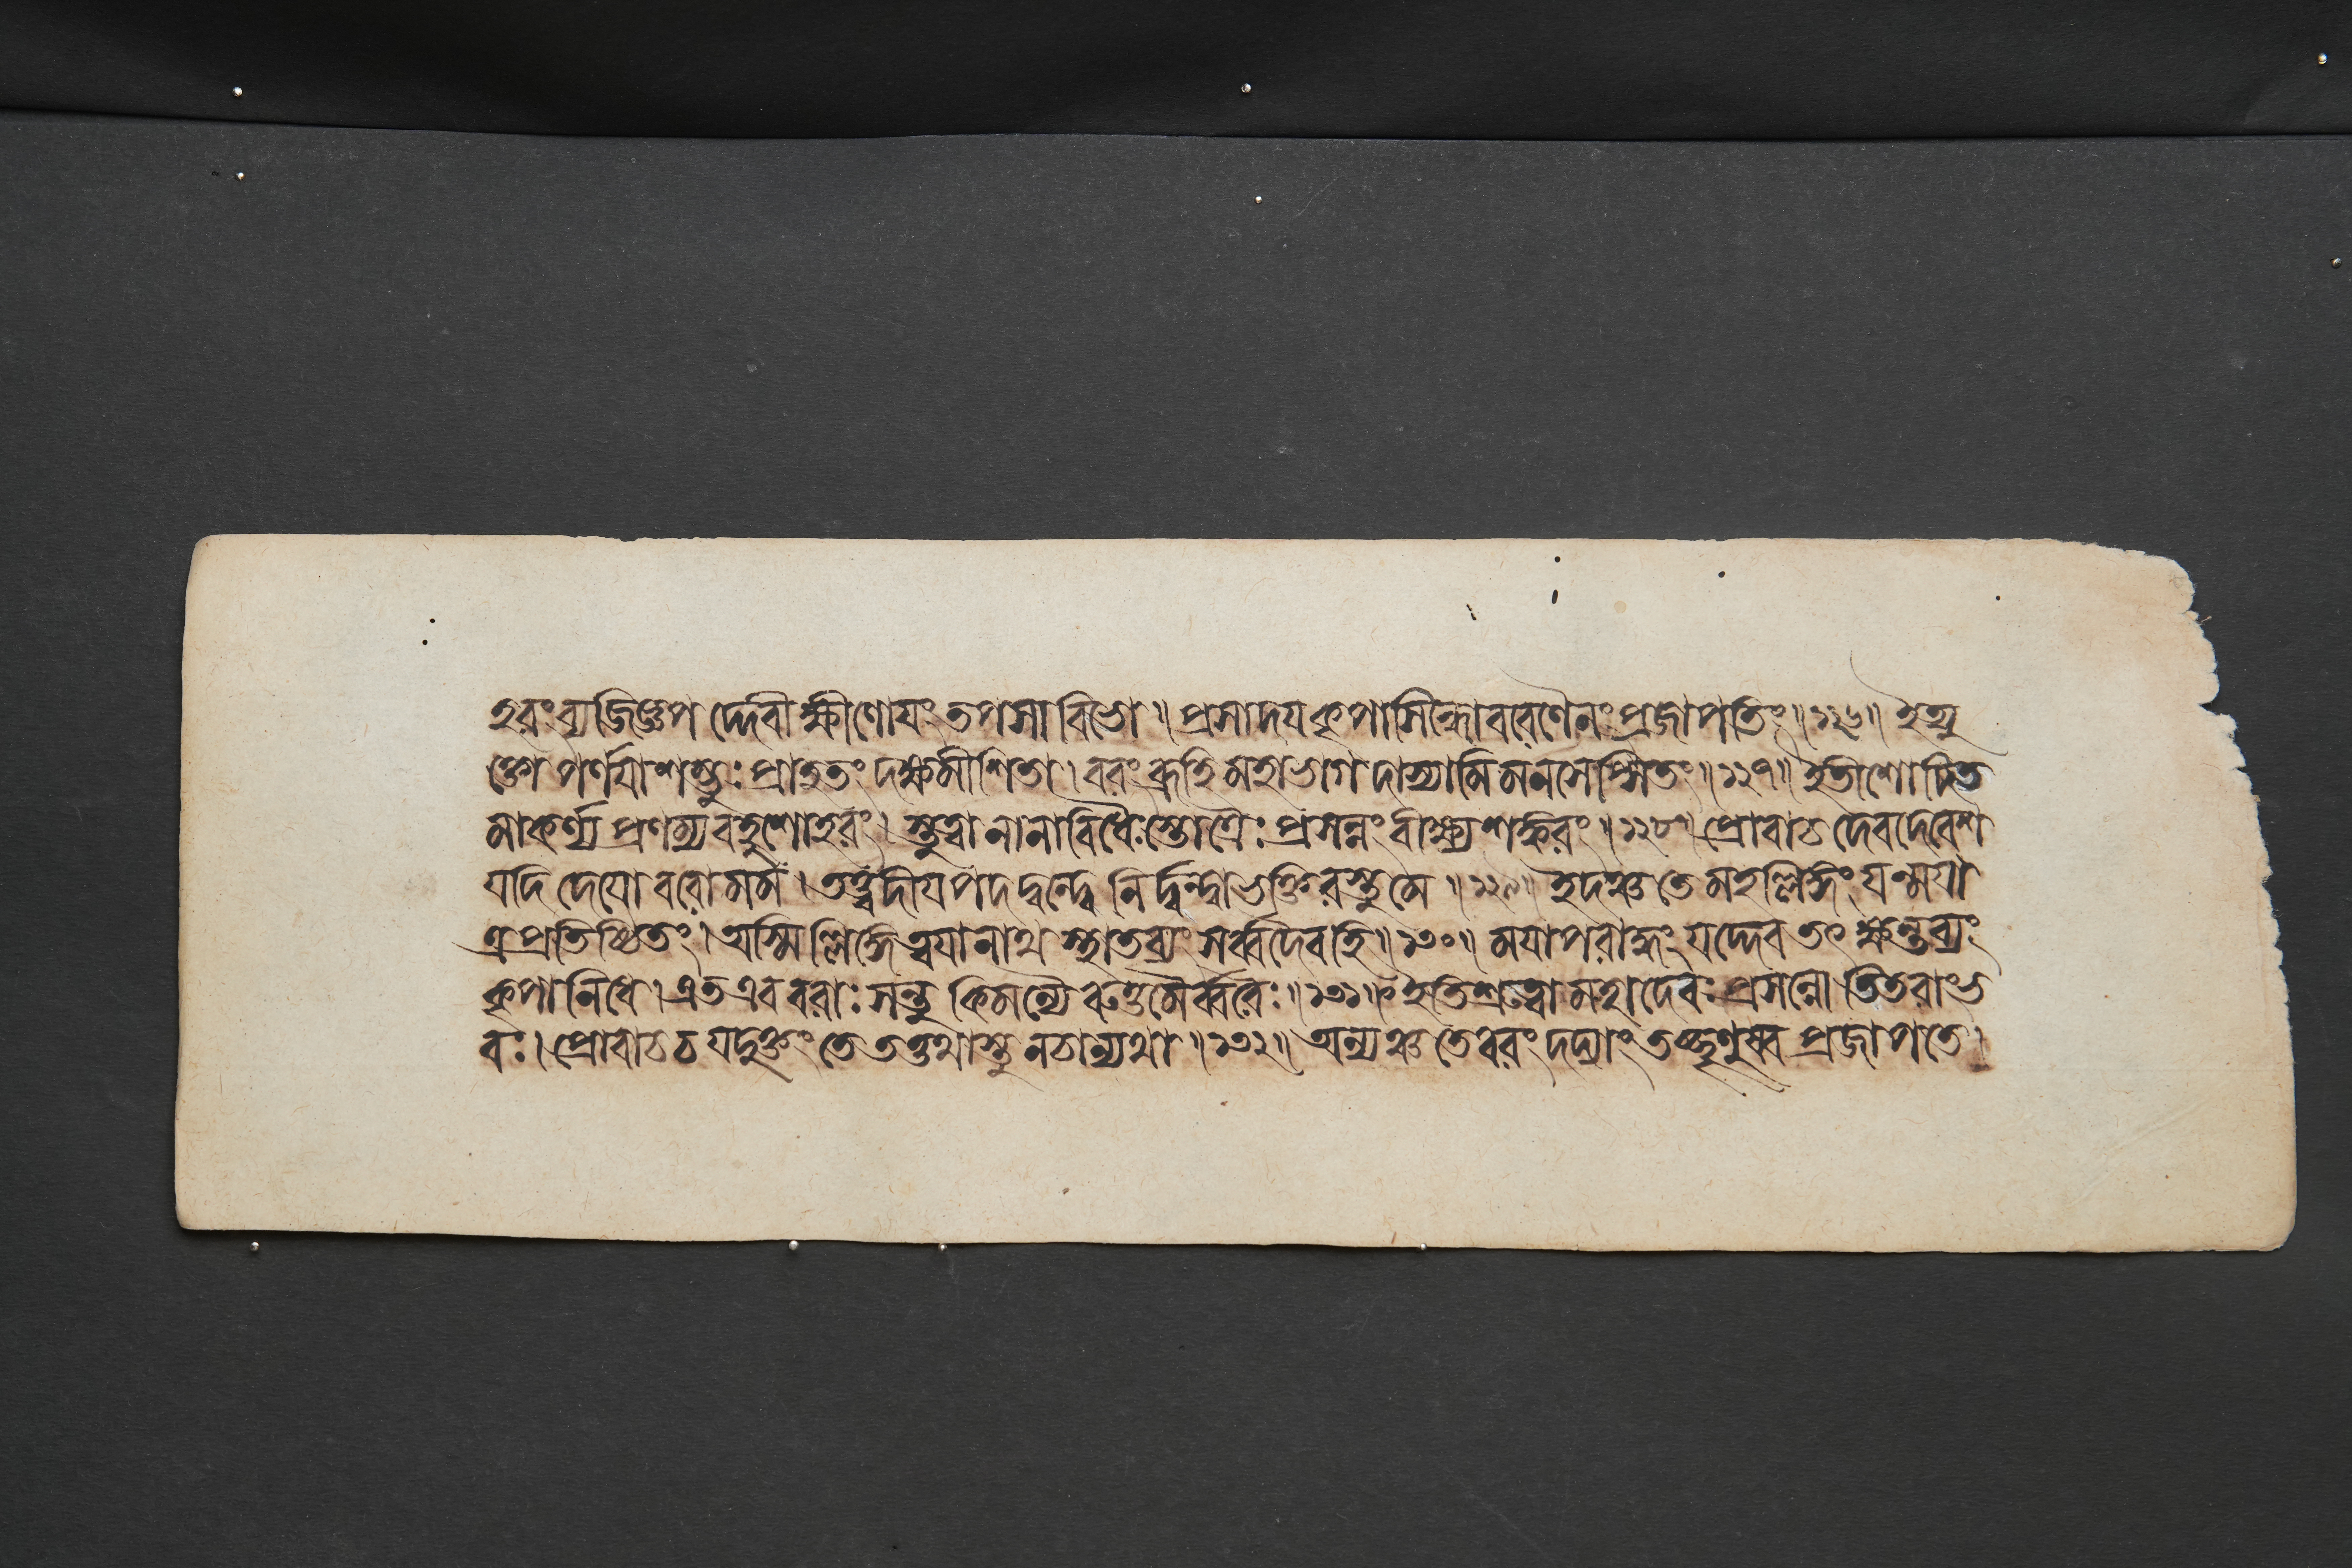 হরং ব্যজিজ্ঞপদ্দেবী ক্ষীণোযং তপসা বিভো ॥ প্রসাদয কৃপাসিন্ধো বরেণৈনং প্রজাপতিং ॥ ১২৬ ॥ ইত্যু
ক্তোপর্ণযা শম্ভুঃ প্রাহ তং দক্ষমীশিতা । বরং ব্রূহি মহাভাগ দাস্যামি মনসেপ্সিতং ॥ ১২৭ ॥ ইতীশোদিত
মাকর্ণ্য প্রণম্য বহুশো হরং । স্তুত্বা নানাবিধৈঃ স্তোত্রৈঃ প্রসন্নং বীক্ষ্য শঙ্করং ॥ ১২৮ ॥ প্রোবাচ দেবদেবেশ
যদি দেযো বরো মম । তত্ত্বদীযপদদ্বন্দ্বে নির্দ্বন্দ্বা ভক্তিরস্তু মে ॥ ১২৯ ॥ ইদঞ্চ তে মহল্লিঙ্গং যন্মযা
ত্র প্রতিষ্ঠিতং । অস্মিল্লিঙ্গে ত্বযা নাথ স্থাতব্যং সর্ব্বদৈব হি ॥ ১৩০ ॥ মযাপরাদ্ধং যদ্দেব তৎ ক্ষন্তব্যং
কৃপানিধে । এত এব বরাঃ সন্তু কিমন্যৈরুত্তমৈর্ব্বরৈঃ ॥ ১৩১ ॥ ইতি শ্রুত্বা মহাদেবঃ প্রসন্নোতিতরাংভ
বঃ । প্রোবাচ চ যদুক্তং তে তত্তথাস্তু নচান্যথা ॥ ১৩২ ॥ অন্যঞ্চ তে বরং দদ্যাং তচ্ছৃণুষ্ব প্রজাপতে ।